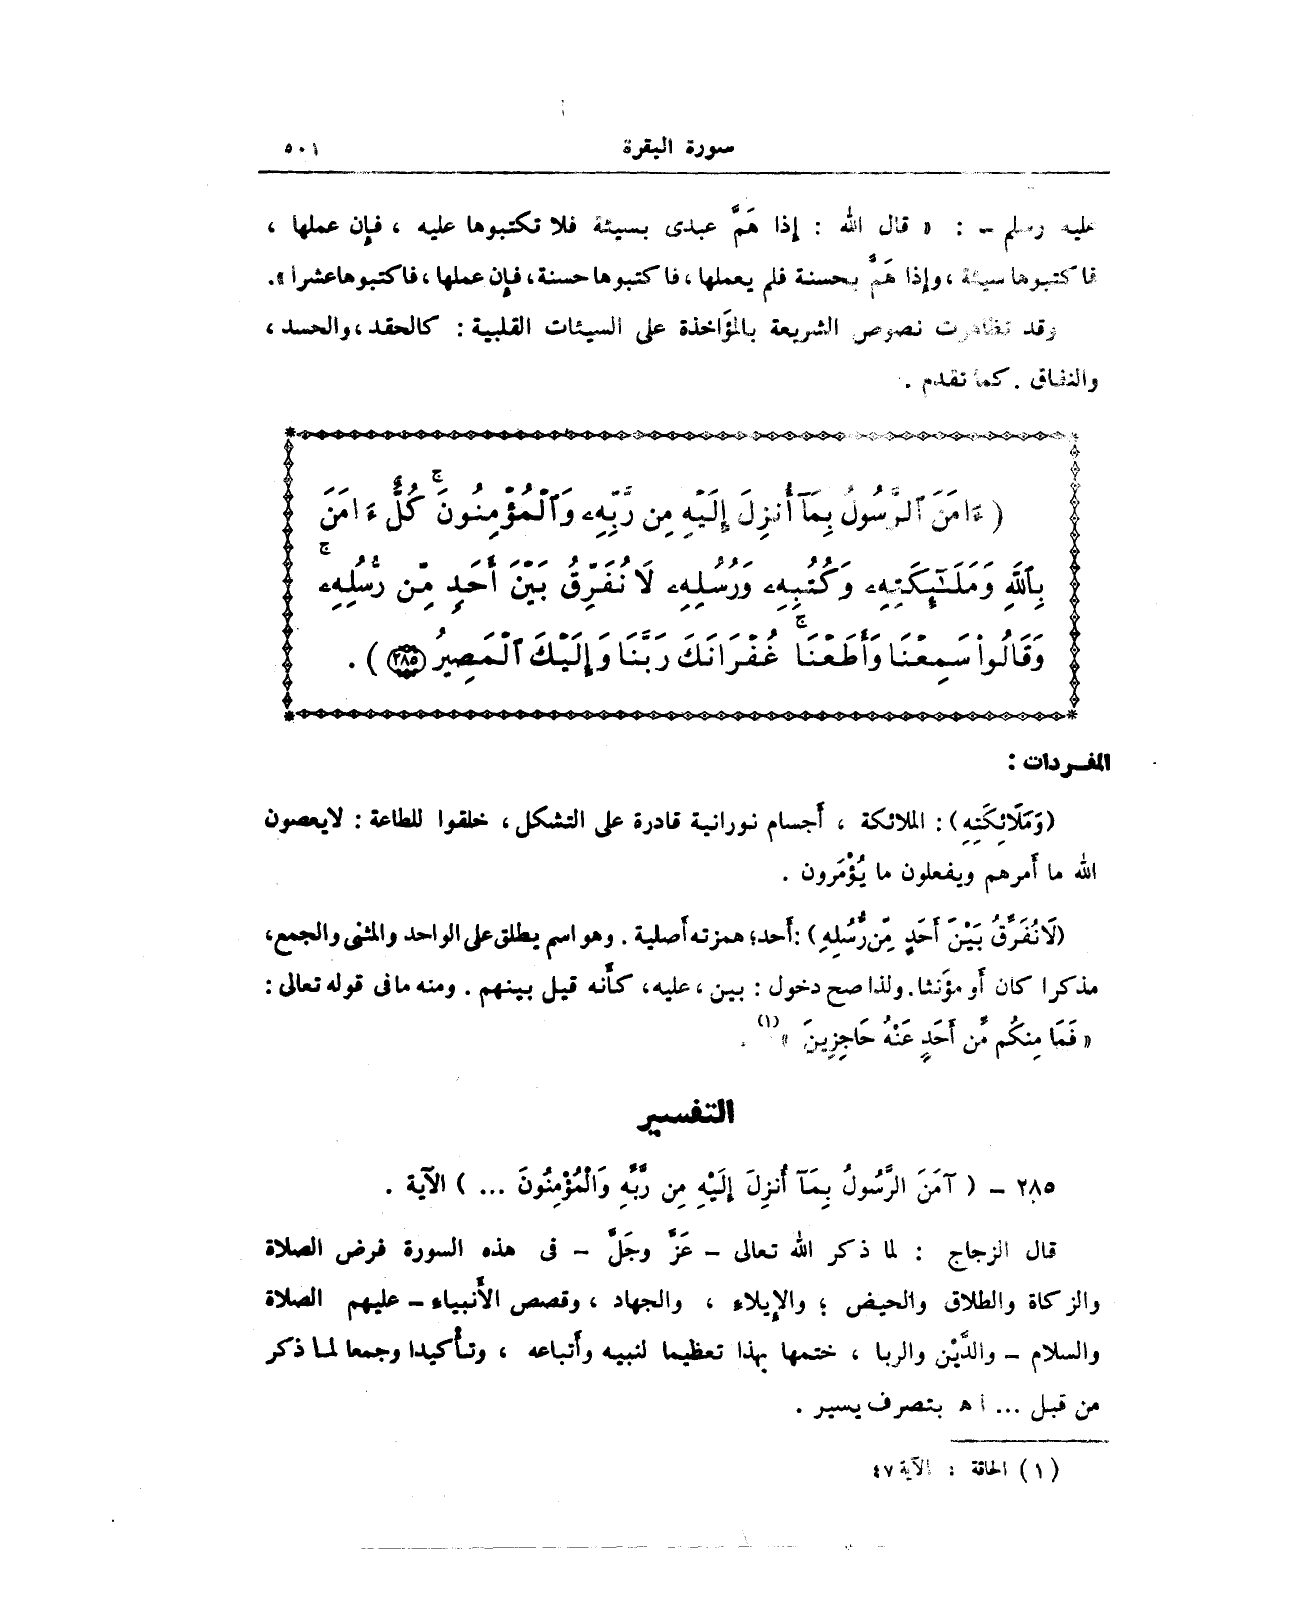 سورة البقرة
٥٠١
عليه وسلم – : « قال الله : إذا هَمَّ عبدى بسيئة فلا تكتبوها عليه ، فإن عملها ،
فاكتبوها سيئة ، وإذا هَمَّ بحسنة فلم يعملها ، فاكتبوها حسنة ، فإن عملها ، فاكتبوها عشرا ».
وقد تظاهرت نصوص الشريعة بالمؤَاخذة على السيئات القلبية : كالحقد ، والحسد ،
والنفاق . كما تقدم .
( ءَامَنَ ٱلرَّسُولُ بِمَآ أُنزِلَ إِلَيْهِ مِن رَّبِّهِۦ وَٱلْمُؤْمِنُونَۚ كُلٌّ ءَامَنَ
بِٱللَّهِ وَمَلَـٰٓئِكَتِهِۦ وَكُتُبِهِۦ وَرُسُلِهِۦ لَا نُفَرِّقُ بَيْنَ أَحَدٍ مِّن رُّسُلِهِۦۚ
وَقَالُوا۟ سَمِعْنَا وَأَطَعْنَاۚ غُفْرَانَكَ رَبَّنَا وَإِلَيْكَ ٱلْمَصِيرُ ٢٨٥ ) .
المفـردات :
(وَمَلَائِكَتِهِ) : الملائكة ، أَجسام نورانية قادرة على التشكل ، خلقوا للطاعة : لايعصون
الله ما أَمرهم ويفعلون ما يُؤْمَرون .
(لَانُفَرِّقُ بَيْنَ أَحَدٍ مِّن رُّسُلِهِ) : أَحد؛ همزته أَصلية . وهو اسم يطلق على الواحد والمثنى والجمع،
مذكرا كان أَو مؤَنثا. ولذا صح دخول : بين ، عليه، كأَنه قيل بينهم . ومنه مافى قوله تعالى :
« فَمَا مِنكُم مِّن أَحَدٍ عَنْهُ حَاجِزِينَ »(١) .
التفسير
٢٨٥ – ( آمَنَ الرَّسُولُ بِمَآ أُنزِلَ إِلَيْهِ مِن رَّبِّهِ وَالْمُؤْمِنُونَ ... ) الآية .
قال الزجاج : لما ذكر الله تعالى – عَزَّ وجَلَّ – فى هذه السورة فرض الصلاة
والزكاة والطلاق والحيض ؛ والإيلاء ، والجهاد ، وقصص الأَنبياء – عليهم الصلاة
والسلام – والدَّيْن والربا ، ختمها بهذا تعظيما لنبيه وأَتباعه ، وتأْكيدا وجمعا لما ذكر
من قبل ... ا ه بتصرف يسير .
( ١ ) الحاقة : الآية ٤٧